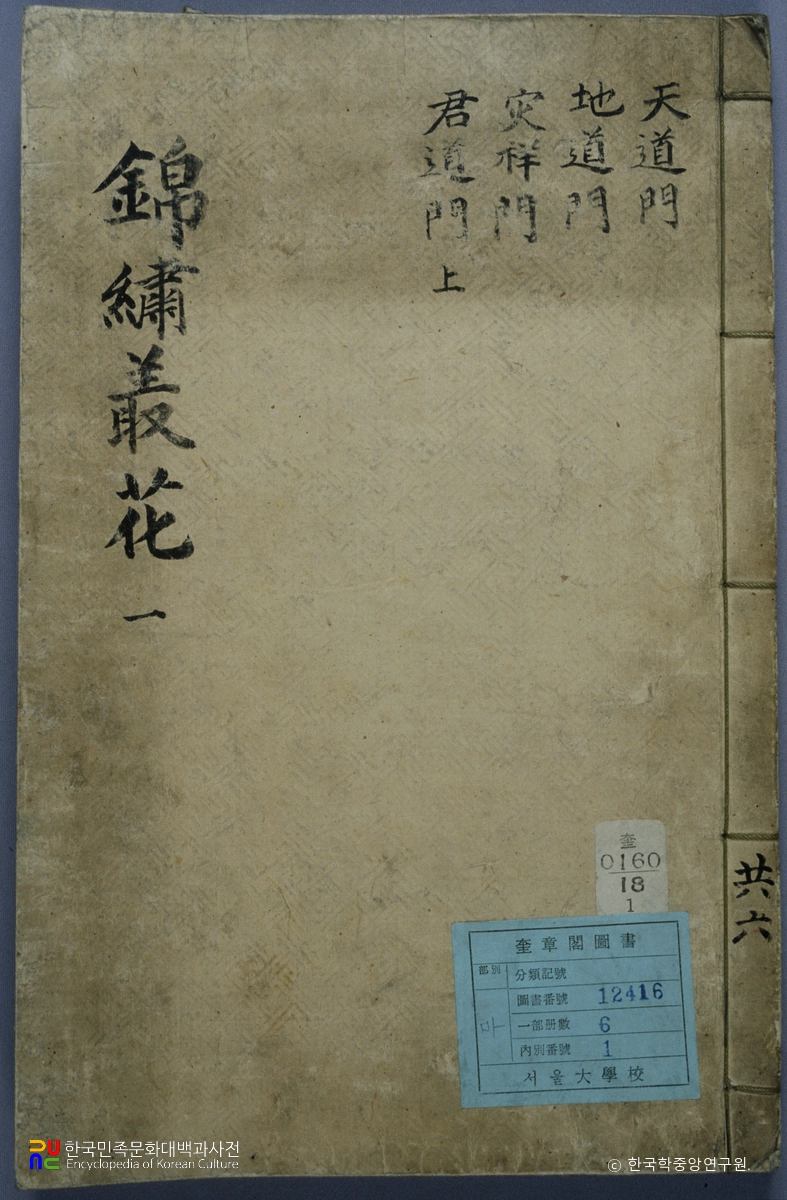 天道門
地道門
灾祥門
君道門 上
錦繡叢花 一
共六
奎
0160
18
1
奎章閣圖書
部別
마
分類記號
圖書番號 12416
一部册數 6
內別番號 1
서울大學校
한국민족문화대백과사전
Encyclopedia of Korean Culture
© 한국학중앙연구원